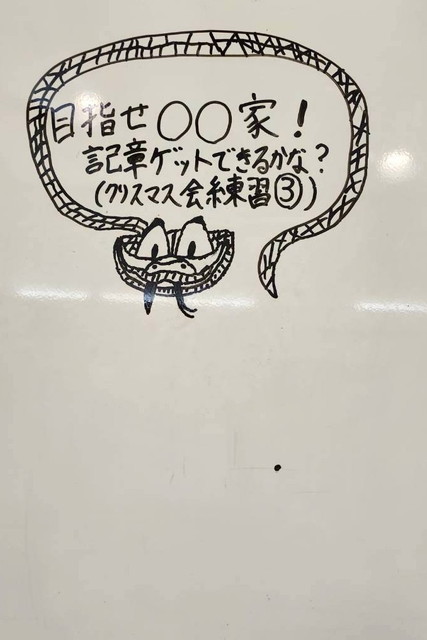 目指せ○○家！
記章ゲットできるかな？
(クリスマス会練習③)